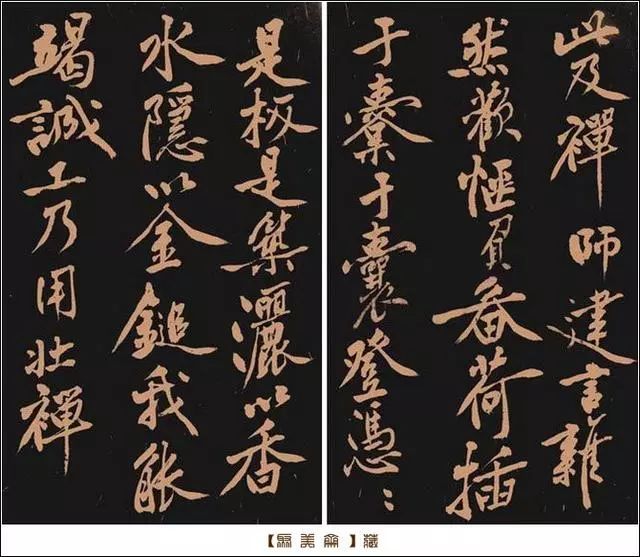 岌禪師建言雜
然歡愜負畚荷插
于橐于囊登馮〻
是板是築灑以香
水隱以金鎚我能
竭誠工乃用壯禪